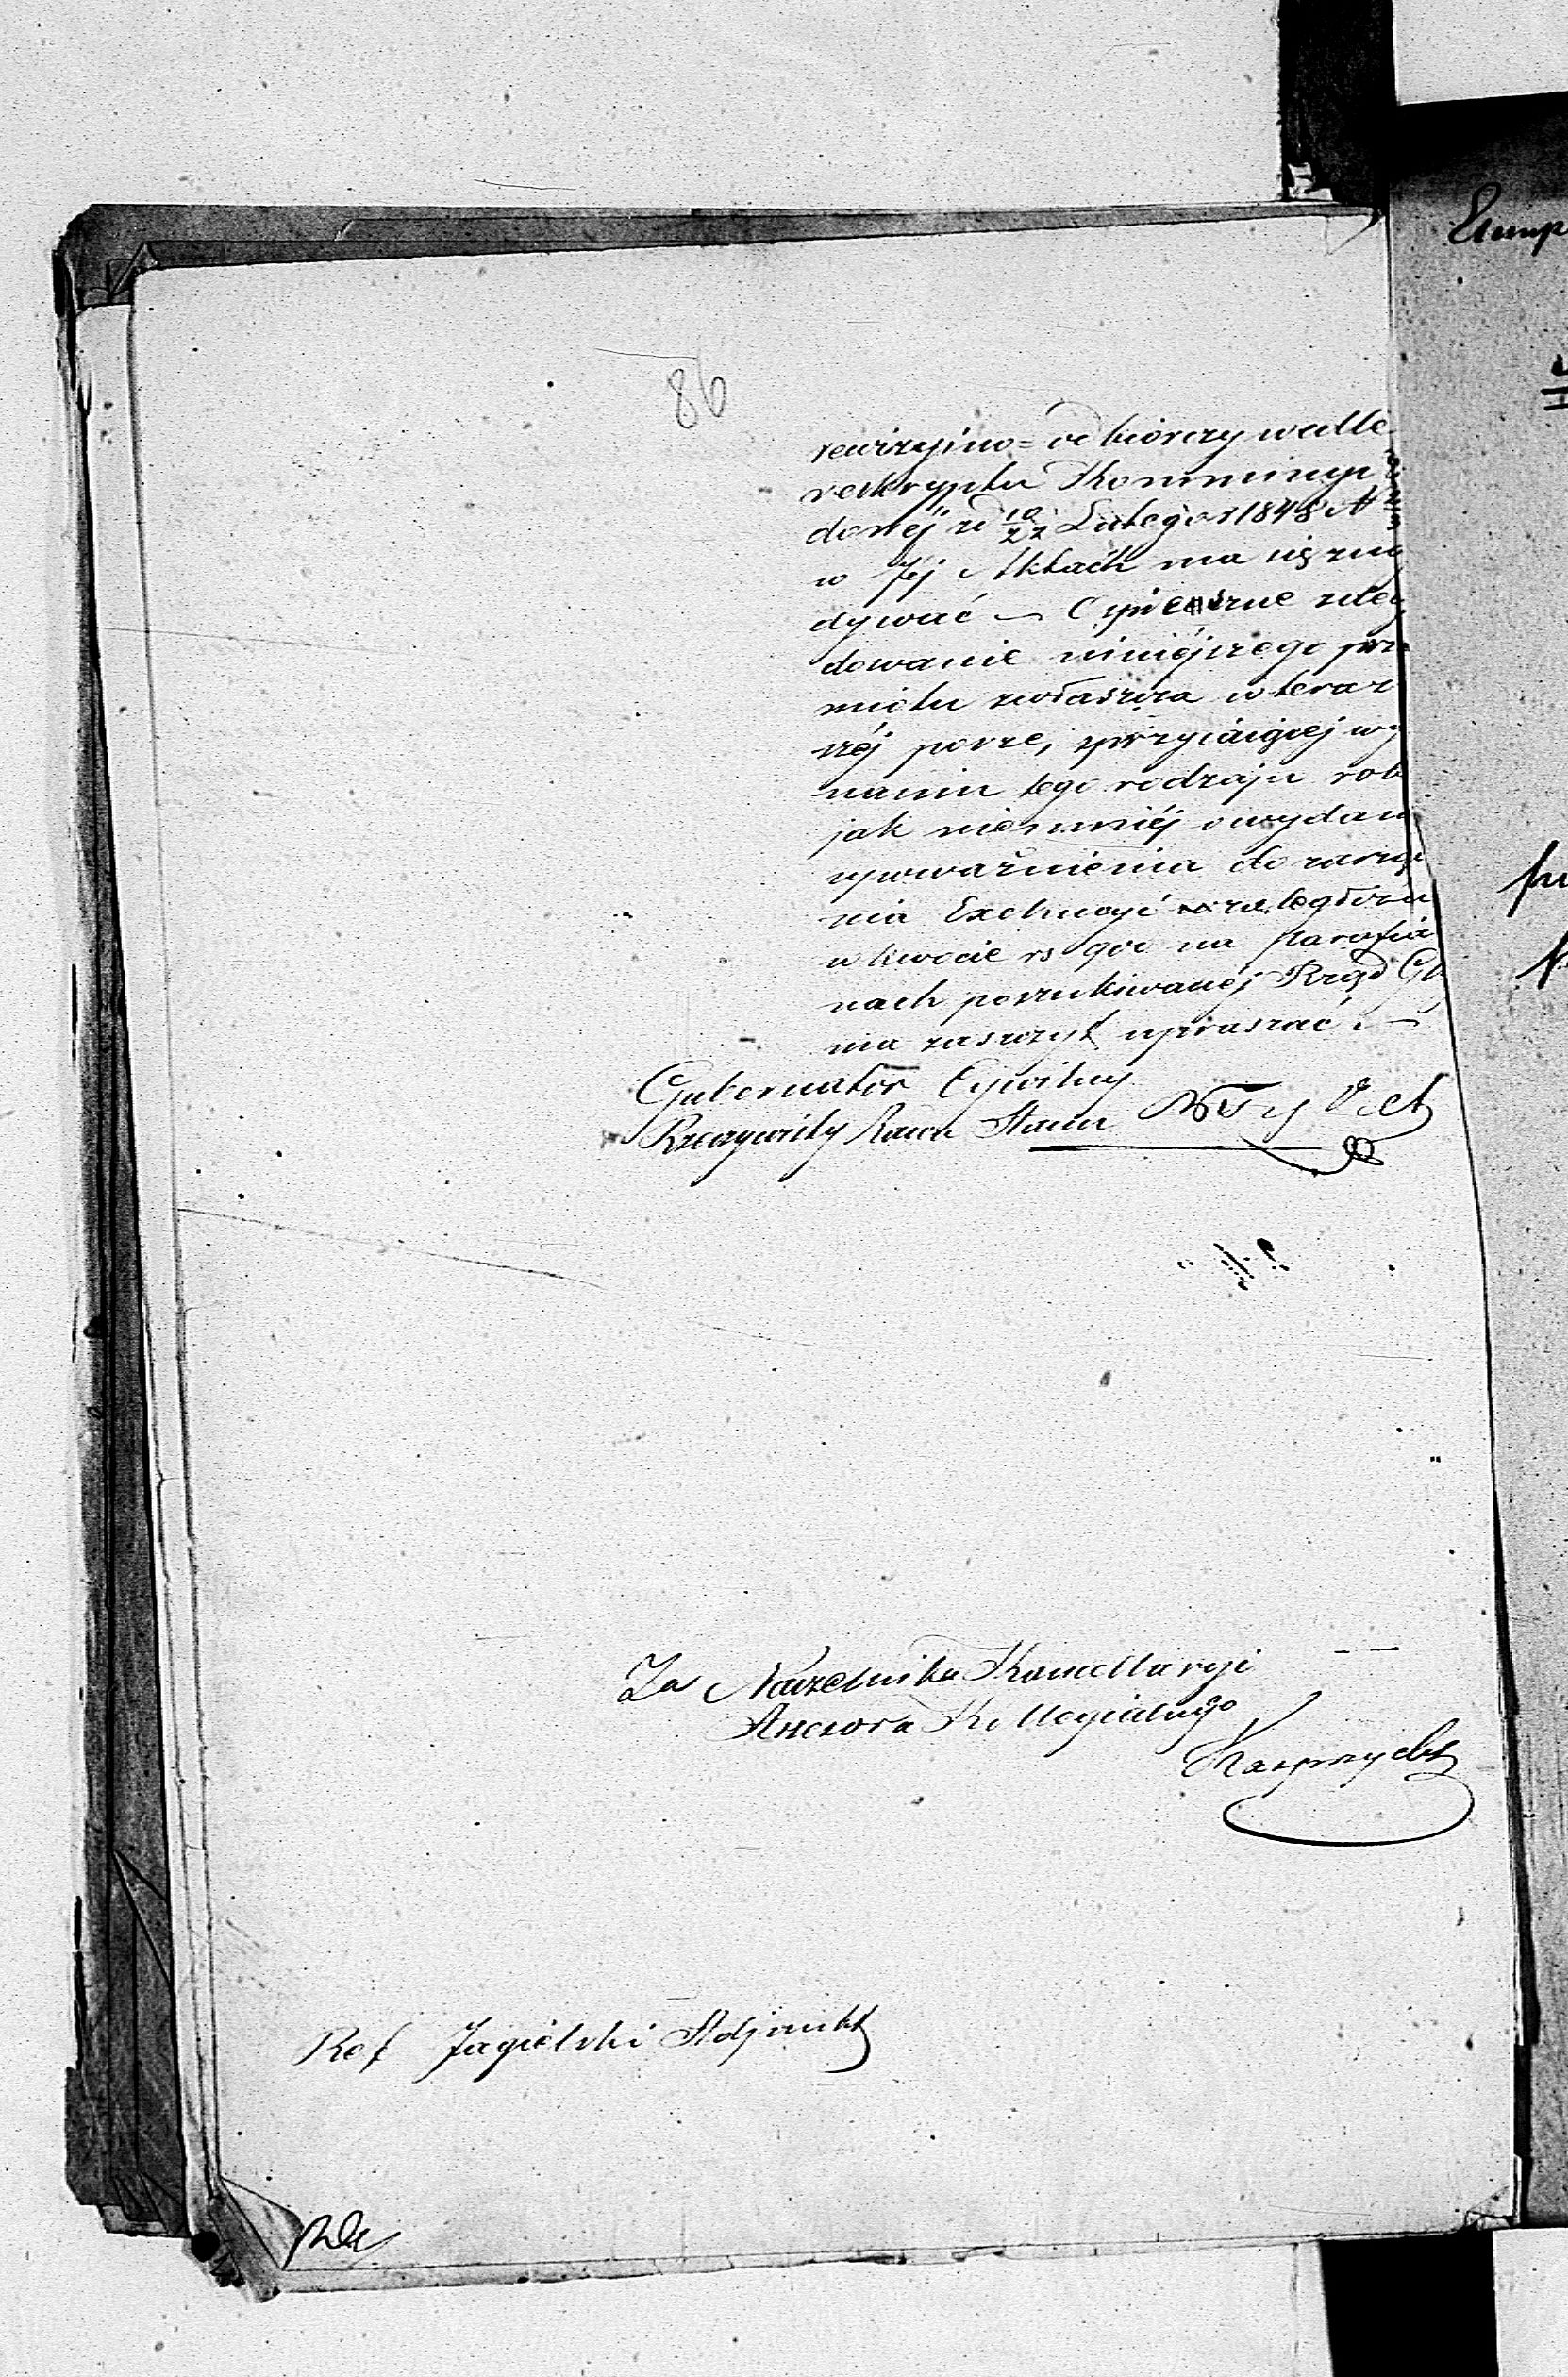 86
rewizyino = odbiorczy wedle
reskryptu Kommissyi
donéj z d 10/22 Lutego r 1848 N
w Jéj Aktach ma się znay
dywać — O spieszne zdecy
dowanie niniéjszego prze
miotu zwłaszcza w teraz
széj porze, sprzyiaiącej wy
naniu tego rodzaju rob
jak niemniéj o wydan
upoważnienia do zarzą
nia Exekucyi zaległości
w kwocie rs 900 na Parafia
nach poszukiwanéj Rząd Gu
ma zaszczyt upraszać. —
Gubernator Cywilny
Rzeczywisty Radca Stanu
Za Naczelnika Kancellaryi
Assesora Kollegialnego
Kasprzycki
Ref Jagielski Adjunkt